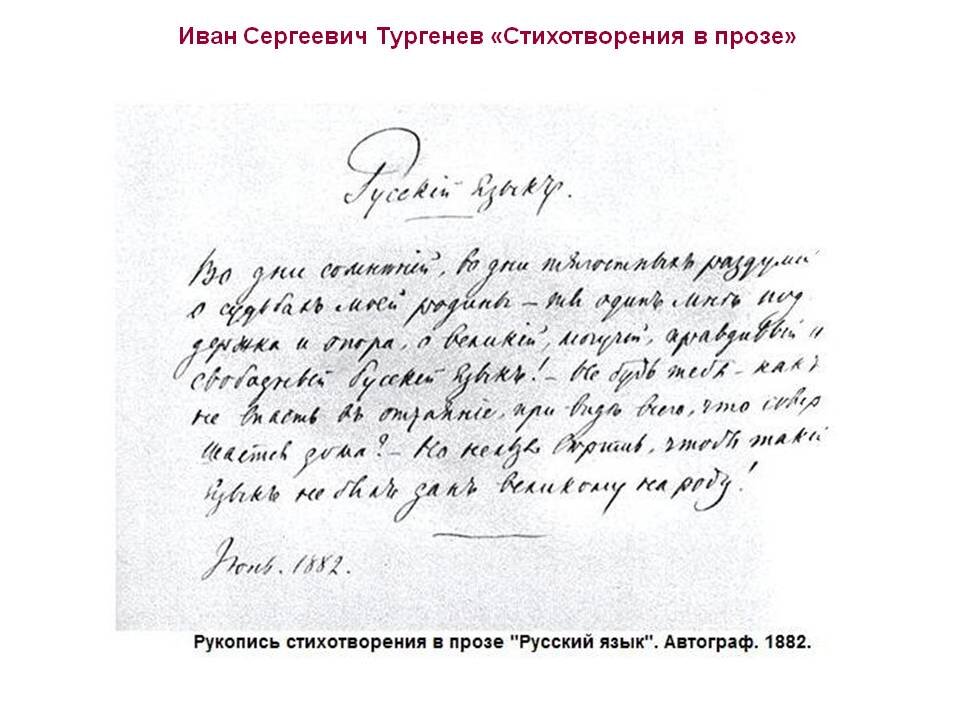 Иван Сергеевич Тургенев «Стихотворения в прозе»
Русскій Языкъ.
Во дни сомнѣній, во дни тягостныхъ раздумій
о судьбахъ моей родины – ты одинъ мнѣ под
держка и опора, о великій, могучій, правдивый и
свободный Русскій Языкъ! – Не будь тебя – какъ
не впасть въ отчаяніе, при видѣ всего, что совер
шается дома? – Но нельзя вѣрить, чтобы такой
языкъ не былъ данъ великому народу!
Іюнь. 1882.
Рукопись стихотворения в прозе "Русский язык". Автограф. 1882.